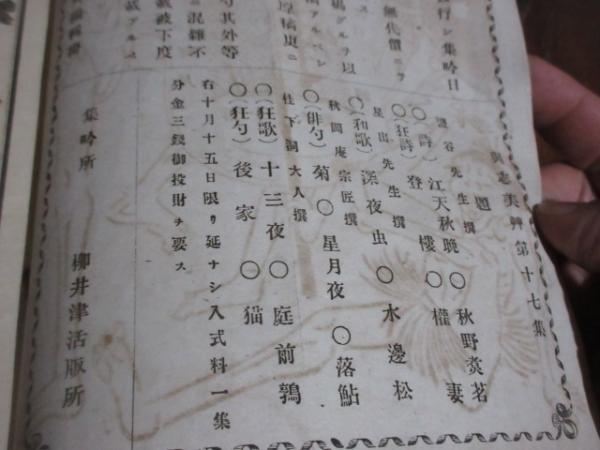 與志美艸第十七集
題
澀谷先生撰
○(詩)江天秋晩 ○秋野煑茗
○(狂詩)登樓 ○權妻
星出先生撰
○(和歌)深夜虫 ○水邊松
秋岡庵宗匠撰
○(俳句)菊 ○星月夜 ○落鮎
桂下園大人撰
○(狂歌)十三夜 ○庭前鶉
○(狂句)後家 ○猫
右十月十五日限リ延ナシ入式料一集
分金三錢御投財チ要ス
集吟所 柳井津活版所
行シ集吟日
無代價ニテ
グル以
アルベシ
厚橋東ニ
句其外等
混雜不
被下度
アルユ